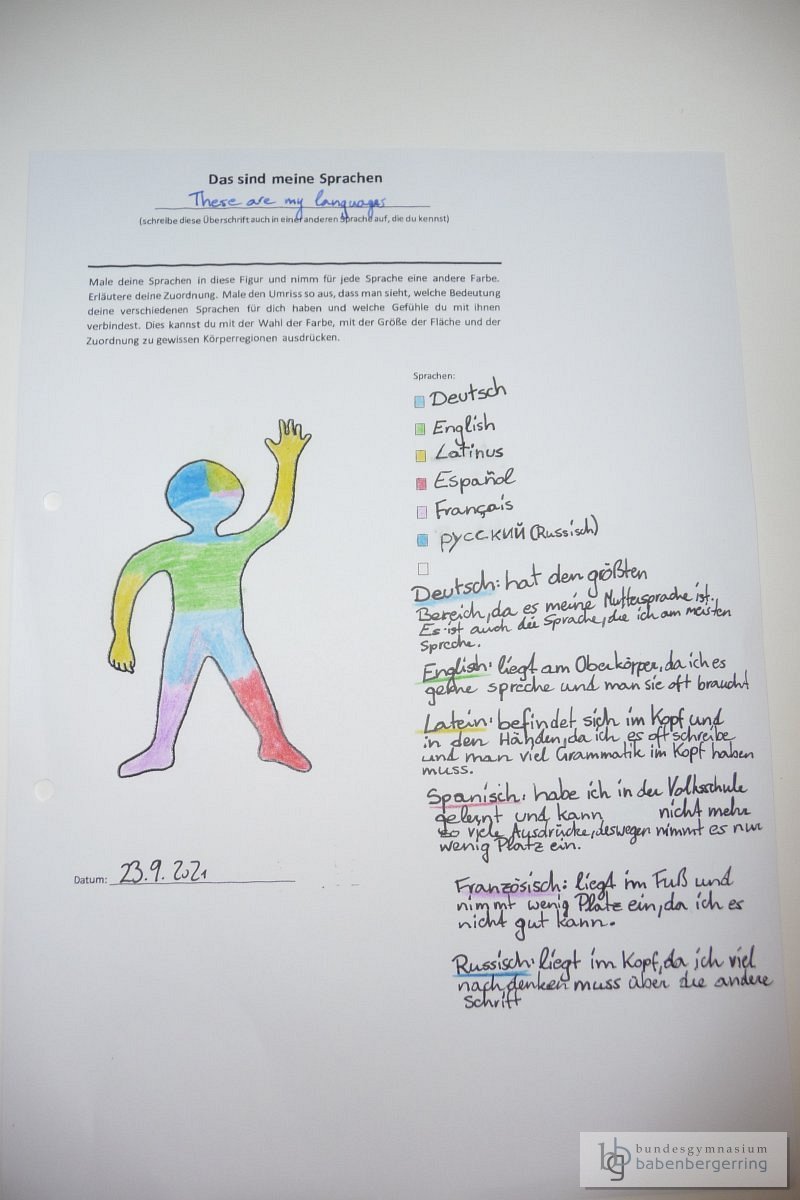 Das sind meine Sprachen
These are my languages
(schreibe diese Überschrift auch in einer anderen Sprache auf, die du kennst)
Male deine Sprachen in diese Figur und nimm für jede Sprache eine andere Farbe.
Erläutere deine Zuordnung. Male den Umriss so aus, dass man sieht, welche Bedeutung
deine verschiedenen Sprachen für dich haben und welche Gefühle du mit ihnen
verbindest. Dies kannst du mit der Wahl der Farbe, mit der Größe der Fläche und der
Zuordnung zu gewissen Körperregionen ausdrücken.
Sprachen:
Deutsch
English
Latinus
Español
Français
русский (Russisch)
Deutsch: hat den größten
Bereich, da es meine Muttersprache ist.
Es ist auch die Sprache, die ich am meisten
spreche.
English: liegt am Oberkörper, da ich es
gerne spreche und man sie oft braucht
Latein: befindet sich im Kopf und
in den Händen, da ich es oft schreibe
und man viel Grammatik im Kopf haben
muss.
Spanisch: habe ich in der Volksschule
gelernt und kann nicht mehr
so viele Ausdrücke, deswegen nimmt es nur
wenig Platz ein.
Französisch: liegt im Fuß und
nimmt wenig Platz ein, da ich es
nicht gut kann.
Russisch: liegt im Kopf, da ich viel
nachdenken muss über die andere
Schrift
Datum: 23.9.2021
bundesgymnasium
babenbergerring